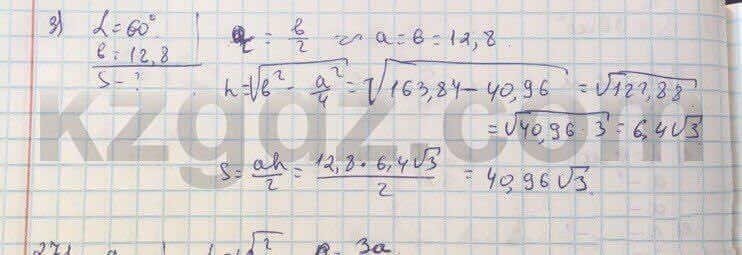 3) L = 60°
b = 12,8
S - ?
a/2 = b/2 ~ a = b = 12,8.
h = √(b² - a²/4) = √(163,84 - 40,96) = √122,88
= √(40,96 · 3) = 6,4√3
S = ah/2 = (12,8 · 6,4√3)/2 = 40,96√3.
kzgdz.com
271